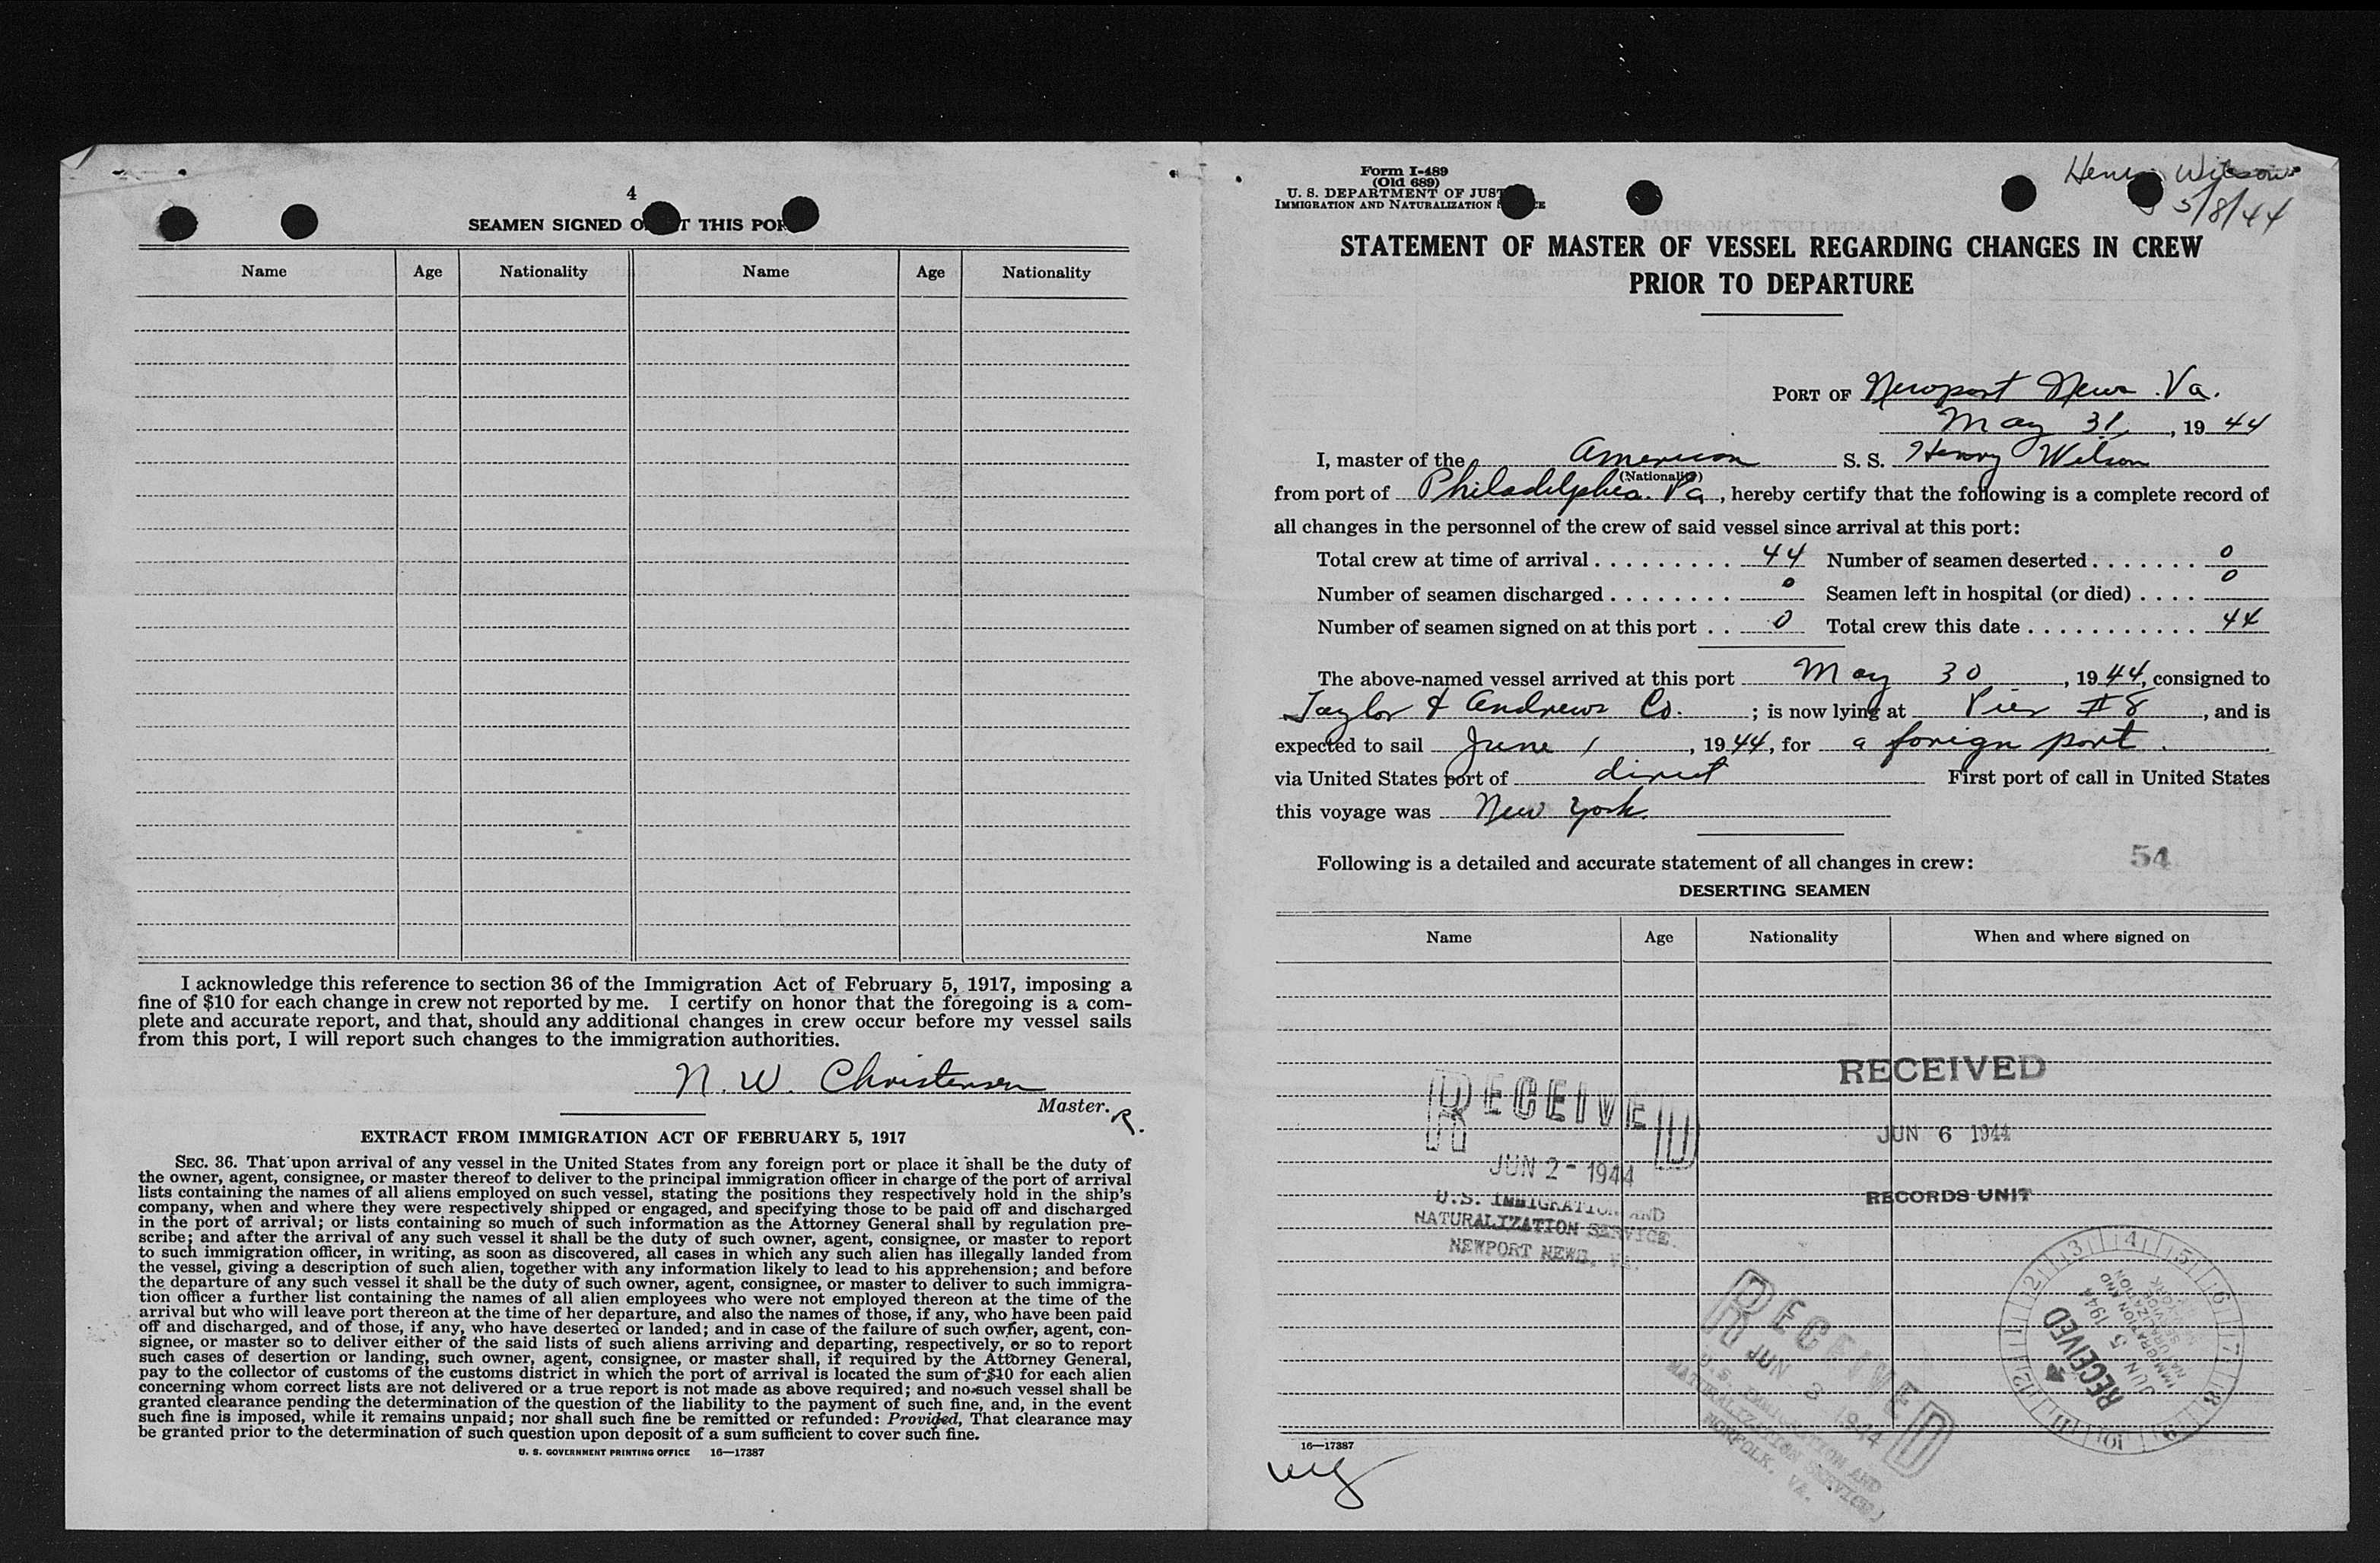 4
SEAMEN SIGNED O T THIS POR
Name Age Nationality Name Age Nationality
I acknowledge this reference to section 36 of the Immigration Act of February 5, 1917, imposing a
fine of $10 for each change in crew not reported by me. I certify on honor that the foregoing is a com-
plete and accurate report, and that, should any additional changes in crew occur before my vessel sails
from this port, I will report such changes to the immigration authorities.
N. W. Christensen
Master. R.
EXTRACT FROM IMMIGRATION ACT OF FEBRUARY 5, 1917
SEC. 36. That upon arrival of any vessel in the United States from any foreign port or place it shall be the duty of
the owner, agent, consignee, or master thereof to deliver to the principal immigration officer in charge of the port of arrival
lists containing the names of all aliens employed on such vessel, stating the positions they respectively hold in the ship's
company, when and where they were respectively shipped or engaged, and specifying those to be paid off and discharged
in the port of arrival; or lists containing so much of such information as the Attorney General shall by regulation pre-
scribe; and after the arrival of any such vessel it shall be the duty of such owner, agent, consignee, or master to report
to such immigration officer, in writing, as soon as discovered, all cases in which any such alien has illegally landed from
the vessel, giving a description of such alien, together with any information likely to lead to his apprehension; and before
the departure of any such vessel it shall be the duty of such owner, agent, consignee, or master to deliver to such immigra-
tion officer a further list containing the names of all alien employees who were not employed thereon at the time of the
arrival but who will leave port thereon at the time of her departure, and also the names of those, if any, who have been paid
off and discharged, and of those, if any, who have deserted or landed; and in case of the failure of such owner, agent, con-
signee, or master so to deliver either of the said lists of such aliens arriving and departing, respectively, or so to report
such cases of desertion or landing, such owner, agent, consignee, or master shall, if required by the Attorney General,
pay to the collector of customs of the customs district in which the port of arrival is located the sum of $10 for each alien
concerning whom correct lists are not delivered or a true report is not made as above required; and no such vessel shall be
granted clearance pending the determination of the question of the liability to the payment of such fine, and, in the event
such fine is imposed, while it remains unpaid; nor shall such fine be remitted or refunded: Provided, That clearance may
be granted prior to the determination of such question upon deposit of a sum sufficient to cover such fine.
U. S. GOVERNMENT PRINTING OFFICE 16—17387
Form I-489
(Old 689)
U. S. DEPARTMENT OF JUST
IMMIGRATION AND NATURALIZATION S CE
Henry Wilson
5/8/44
STATEMENT OF MASTER OF VESSEL REGARDING CHANGES IN CREW
PRIOR TO DEPARTURE
PORT OF Newport News Va.
May 31, 1944
I, master of the American S. S. Henry Wilson
(Nationality)
from port of Philadelphia. Pa, hereby certify that the following is a complete record of
all changes in the personnel of the crew of said vessel since arrival at this port:
Total crew at time of arrival . . . . . . . . . . 44 Number of seamen deserted . . . . . . . 0
Number of seamen discharged . . . . . . . . 0 Seamen left in hospital (or died) . . . . 0
Number of seamen signed on at this port . . 0 Total crew this date . . . . . . . . . . . . 44
The above-named vessel arrived at this port May 30, 1944, consigned to
Taylor & Andrews Co. ; is now lying at Pier #8, and is
expected to sail June 1, 1944, for a forign port.
via United States port of direct First port of call in United States
this voyage was New York.
Following is a detailed and accurate statement of all changes in crew:
54
DESERTING SEAMEN
Name Age Nationality When and where signed on
RECEIVED
JUN 2 - 1944
U.S. IMMIGRATION AND
NATURALIZATION SERVICE
NEWPORT NEWS, VA.
RECEIVED
JUN 6 1944
RECORDS UNIT
RECEIVED
JUN 3 1944
U.S. IMMIGRATION AND
NATURALIZATION SERVICE
NORFOLK, VA.
1 2 3 4 5 6 7 8 9 10 11 12
RECEIVED
JUN 5 1944
IMMIGRATION AND
NATURALIZATION
SERVICE
16—17387